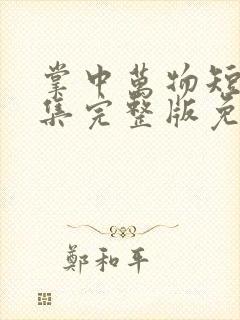 掌中萬物短
集完整版免
鄭和平